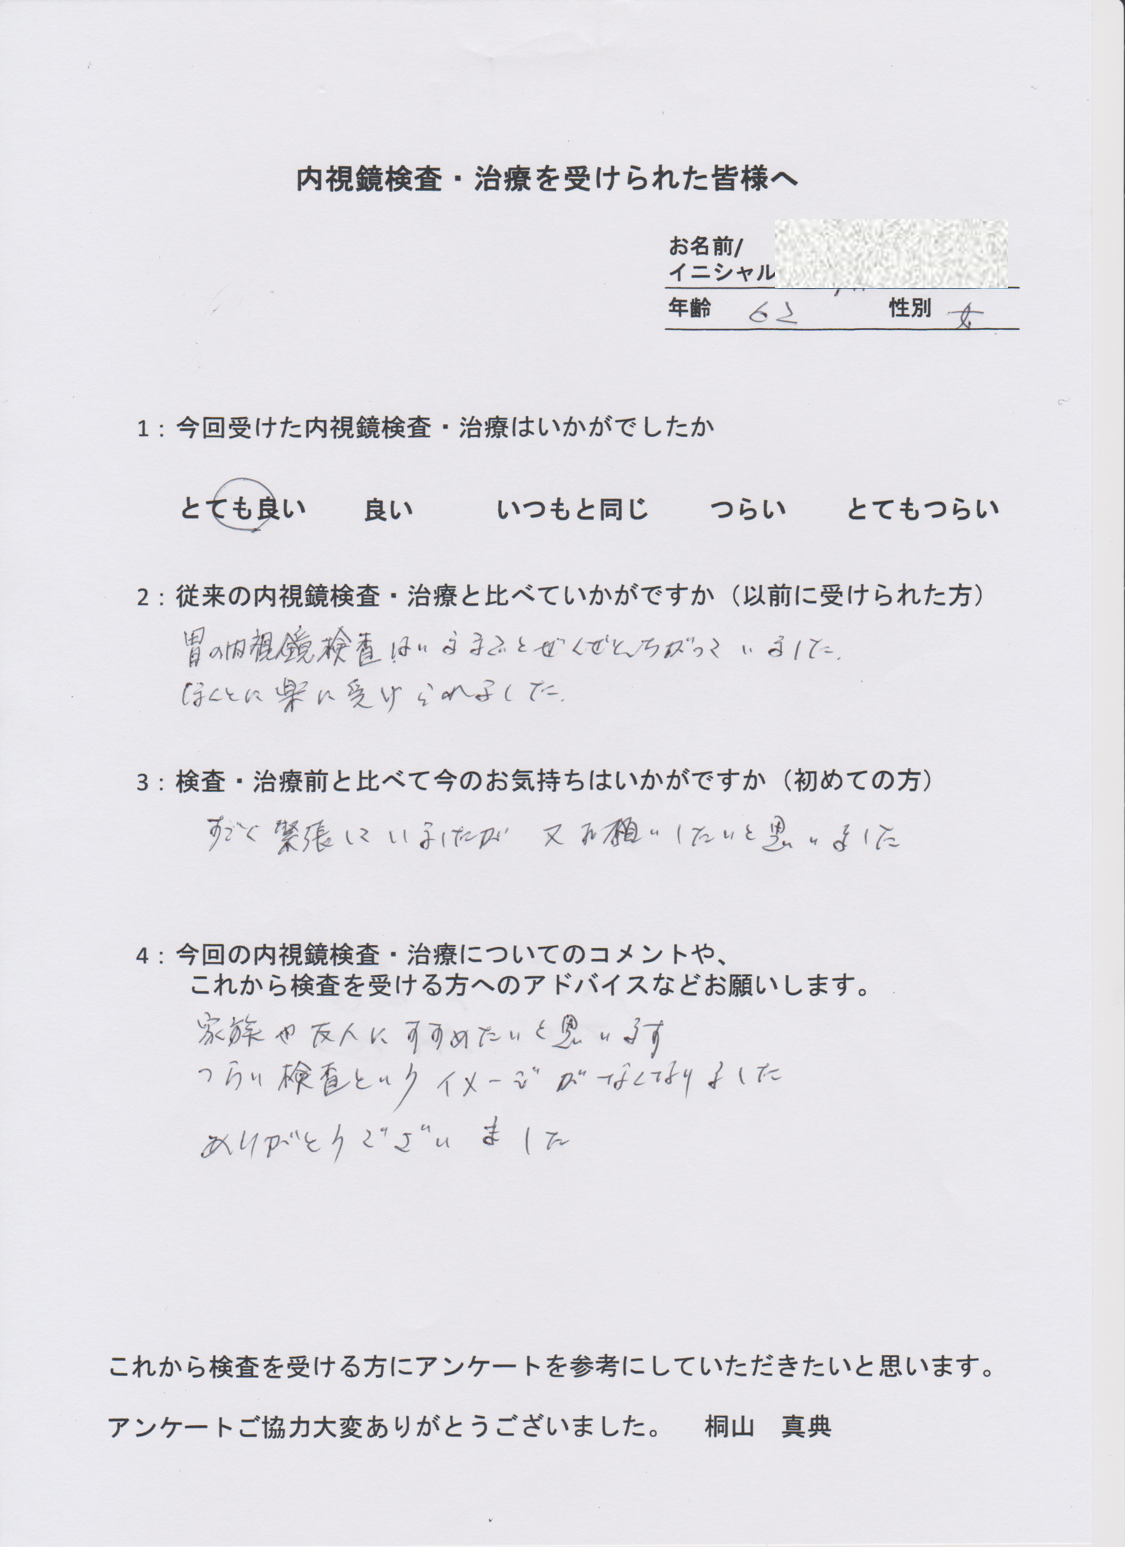 内視鏡検査・治療を受けられた皆様へ
お名前/
イニシャル
年齢 62 性別 女
1：今回受けた内視鏡検査・治療はいかがでしたか
とても良い 良い いつもと同じ つらい とてもつらい
2：従来の内視鏡検査・治療と比べていかがですか（以前に受けられた方）
胃の内視鏡検査はいままでとぜんぜんちがっていました。
ほんとに楽に受けられました。
3：検査・治療前と比べて今のお気持ちはいかがですか（初めての方）
すごく緊張していましたが 又お願いしたいと思いました
4：今回の内視鏡検査・治療についてのコメントや、
これから検査を受ける方へのアドバイスなどお願いします。
家族や友人にすすめたいと思います
つらい検査というイメージがなくなりました
ありがとうございました
これから検査を受ける方にアンケートを参考にしていただきたいと思います。
アンケートご協力大変ありがとうございました。 桐山 真典